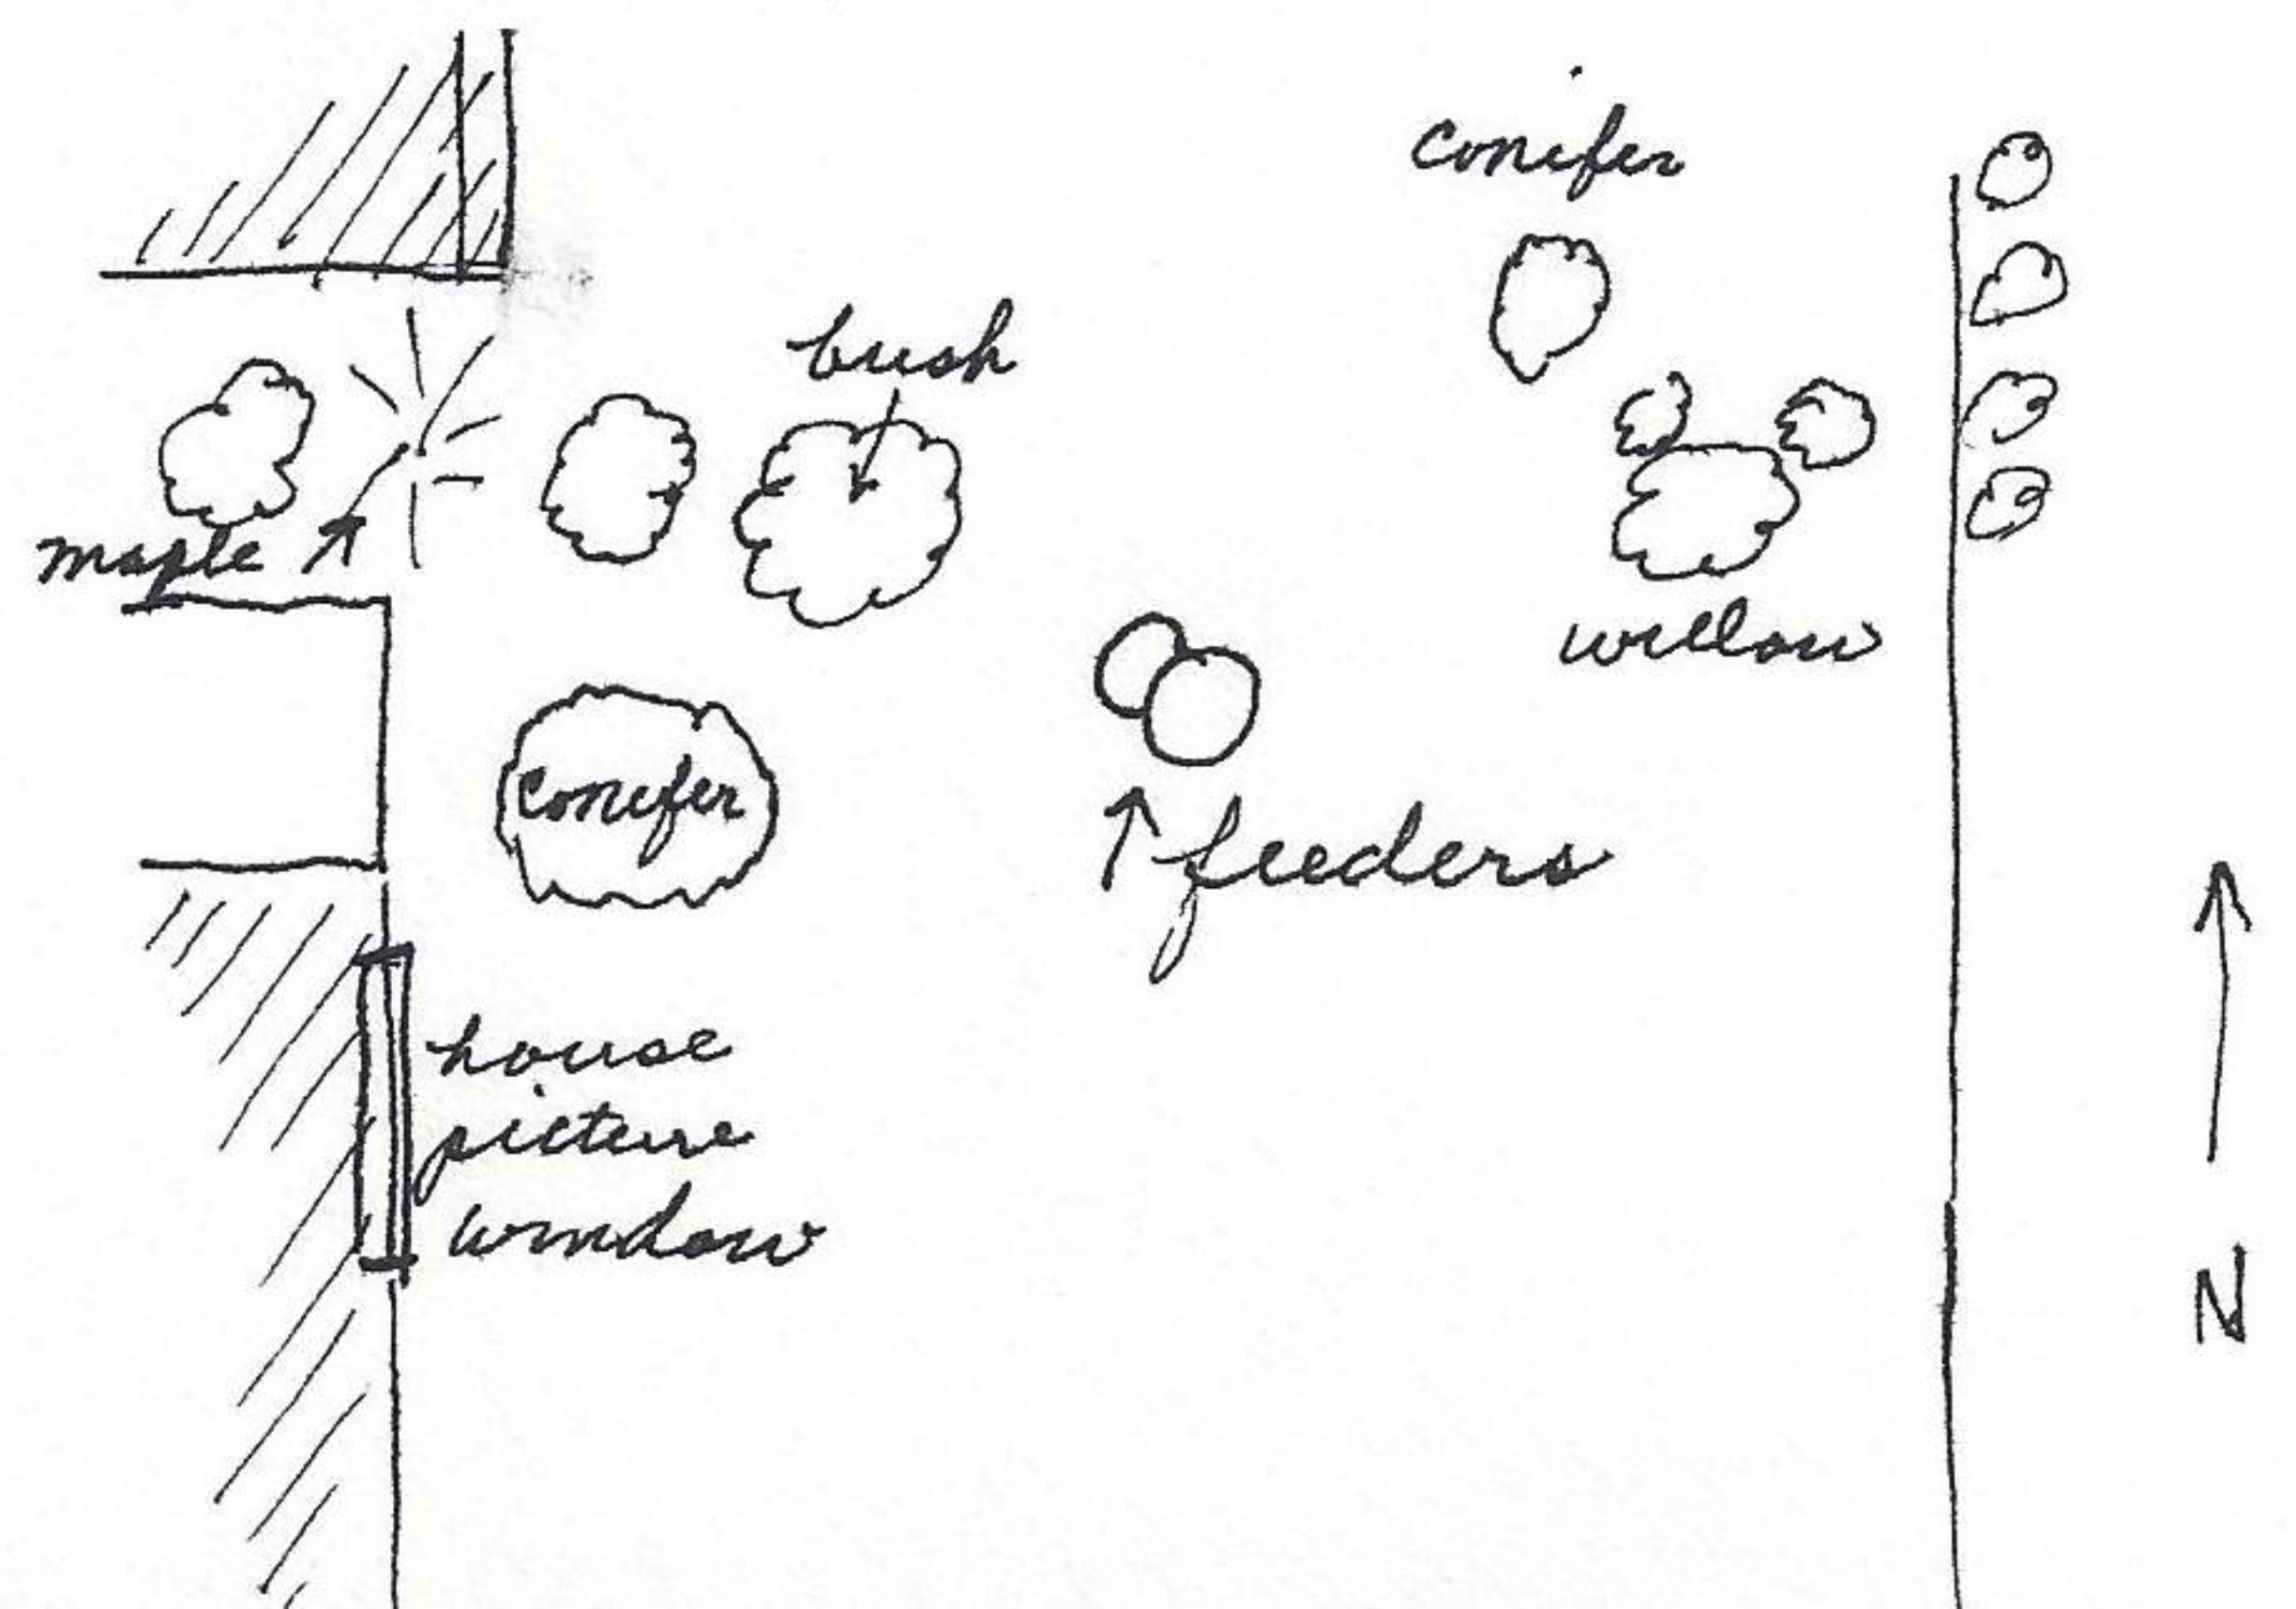 conifer
bush
maple
willow
conifer
feeders
house
picture
window
N